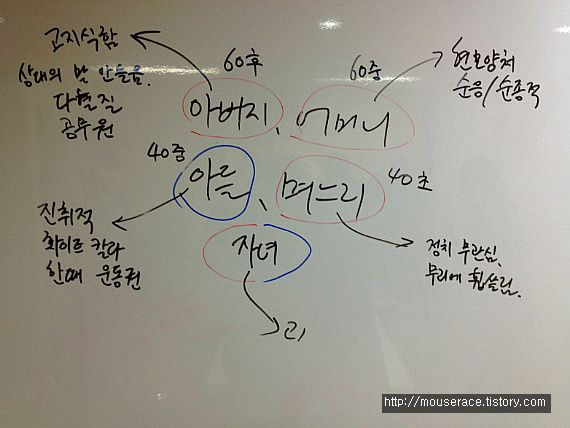 고지식함
상대의 말 안들음.
다혈질
공무원
60후
아버지、
60중
어머니
현모양처
순응/순종적
40중
아들、
며느리
40초
진취적
화이트 칼라
한때 운동권
자녀
정치 무관심.
무리에 휩쓸림.
고1
http://mouserace.tistory.com